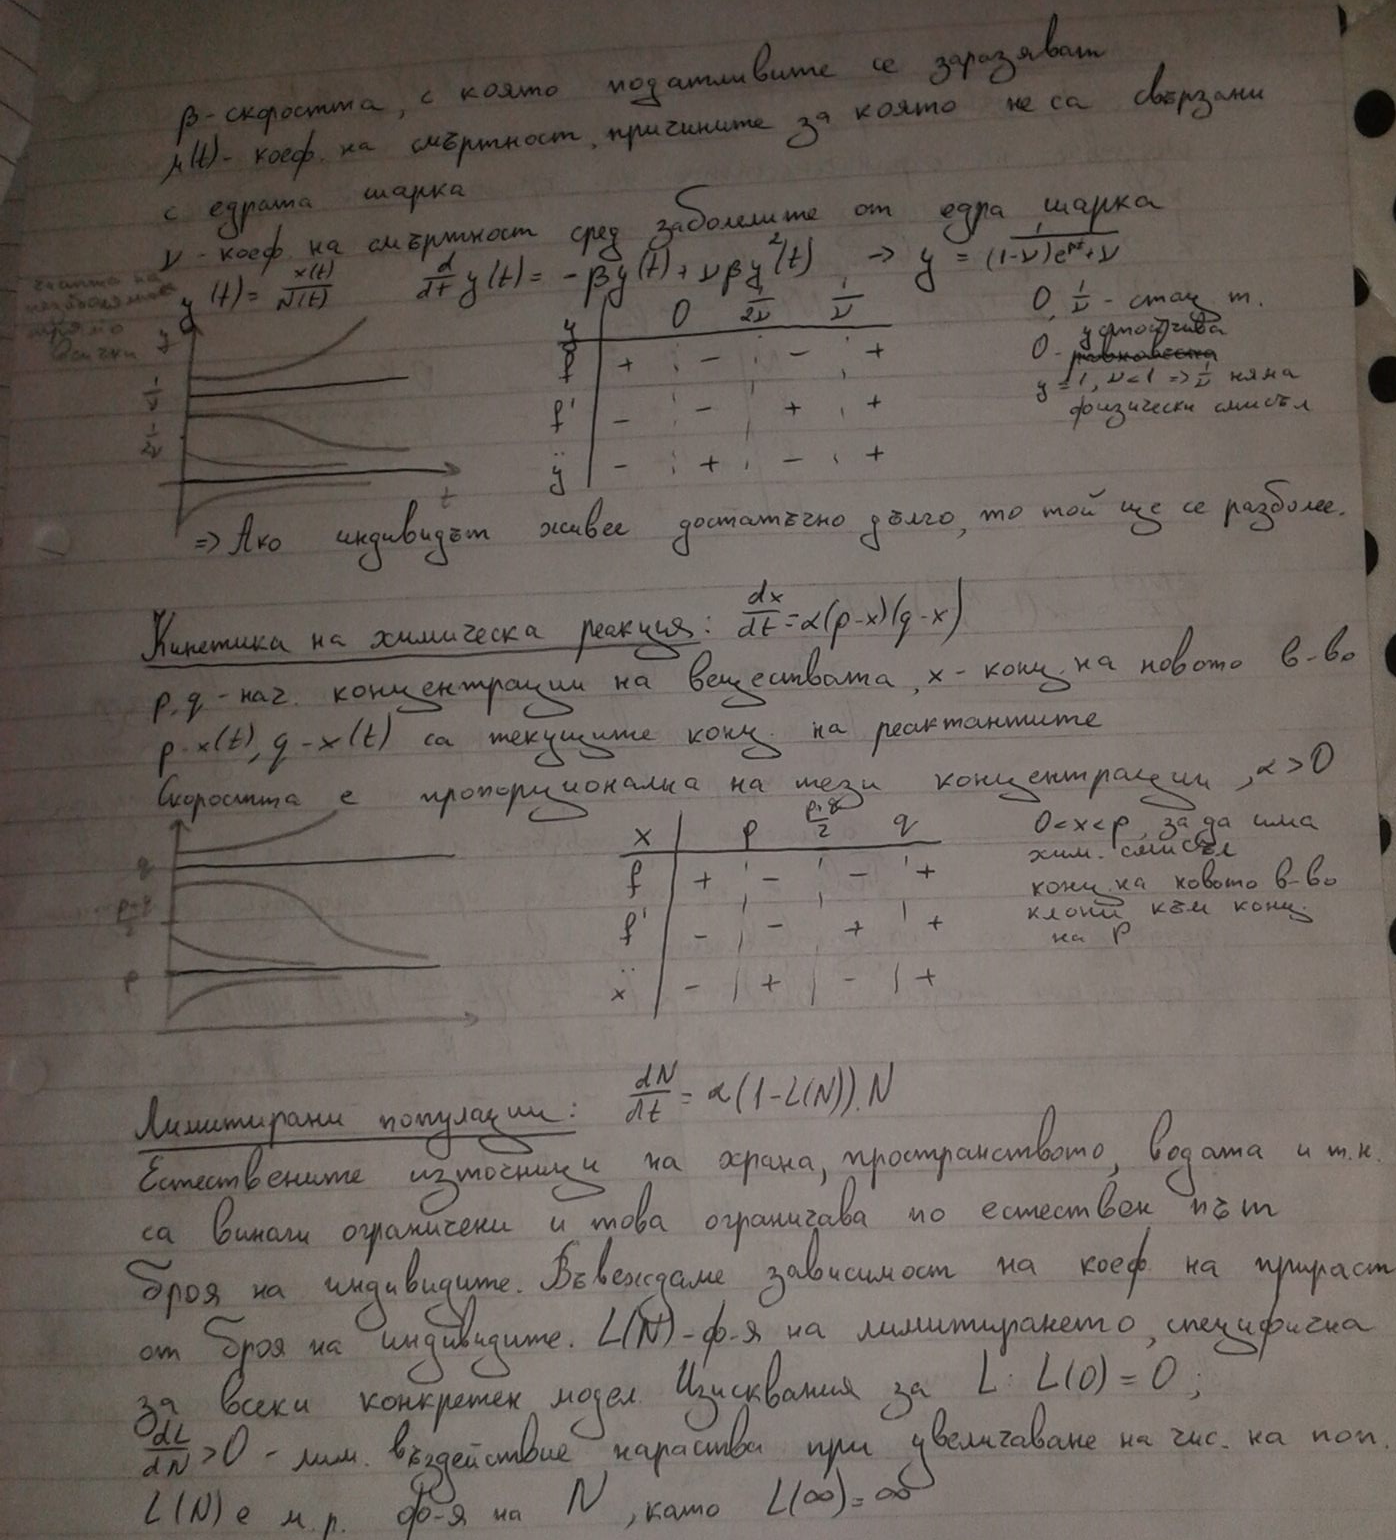 β - скоростта, с която податливите се заразяват
μ(t) - коеф. на смъртност, причините за която не са свързани
с едрата шарка
ν - коеф. на смъртност сред заболелите от едра шарка
y(t) = x(t)/N(t)   d/dt y(t) = -βy(t) + νβy²(t) → y = 1/((1-ν)e^βt + ν)
y | 0 1/2ν 1/ν
f | + - - +
f' | - - + +
ÿ | - + - +
0, 1/ν - стац. т.
0 - устойчива
y = 1, ν < 1 => 1/ν няма
физически смисъл
y
1/ν
1/2ν
t
=> Ако индивидът живее достатъчно дълго, то той ще се разболее.
Кинетика на химическа реакция: dx/dt = α(p-x)(q-x)
p, q - нач. концентрации на веществата, x - конц. на новото в-во
p-x(t), q-x(t) са текущите конц. на реактантите
Скоростта е пропорционална на тези концентрации, α > 0
x | p p+q/2 q
f | + - - +
f' | - - + +
ẍ | - + - +
0 < x < p, за да има
хим. смисъл
конц. на новото в-во
клони към конц.
на p
q
p+q/2
p
Лимитирани популации: dN/dt = α(1-L(N)).N
Естествените източници на храна, пространството, водата и т.н.
са винаги ограничени и това ограничава по естествен път
броя на индивидите. Въвеждаме зависимост на коеф. на прираст
от броя на индивидите. L(N) - ф-я на лимитирането, специфична
за всеки конкретен модел. Изисквания за L: L(0) = 0;
dL/dN > 0 - лим. въздействие нараства при увеличаване на чис. на поп.
L(N) е м. р. ф-я на N, като L(∞) = ∞